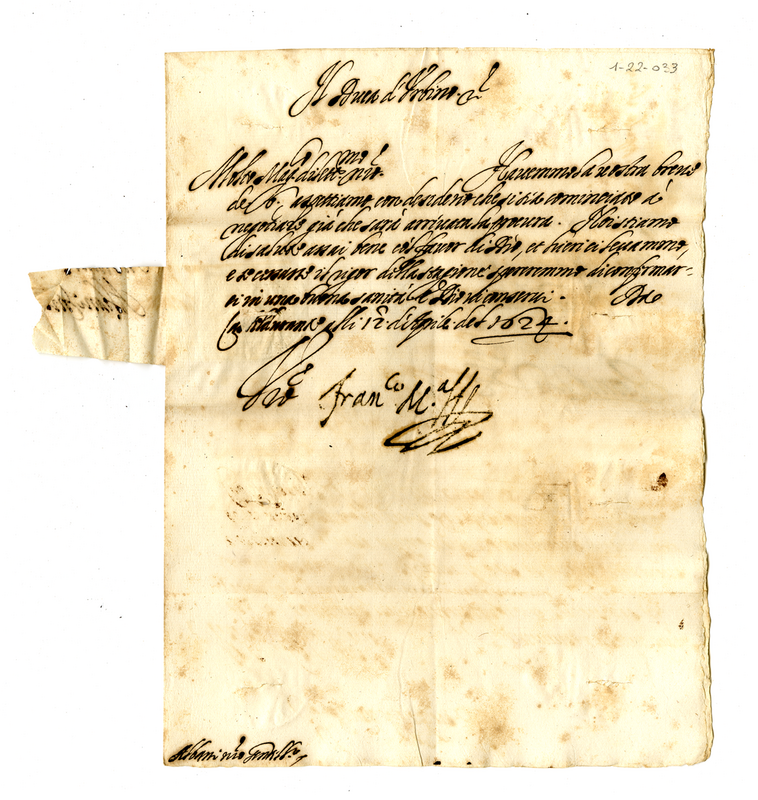 1-22-033
Il Duca d'Urbino &c.
Molto Mag.co dilett.mo n.ro Haremmo la vostra breve
de 6, aspettiamo con desiderio che si sia cominciato à
negotiare già che sarà arrivata la procura. Noi stiamo
di salute assai bene col favor di Dio, et hieri ci levammo,
e se cessasse il rigor della stagione speraremmo di confirmar-
ci in una buona sanità. E Dio vi conservi. Da
Casteldurante alli 12 di Aprile del 1624.
Fran.co M.a
Albani n.ro Gentil.